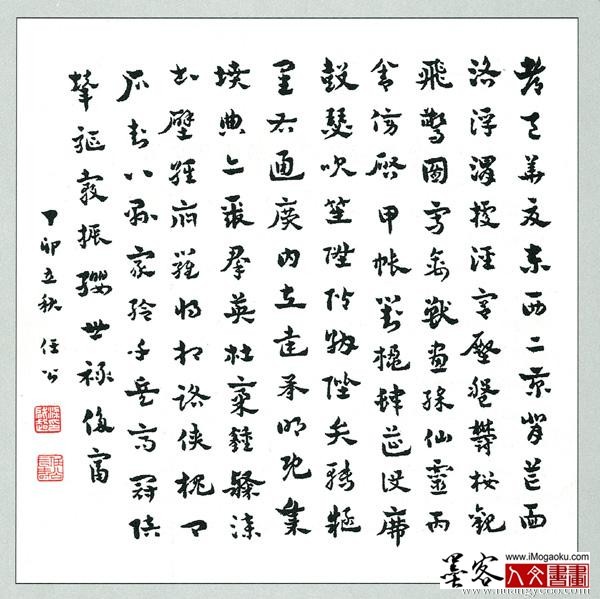 都邑華夏東西二京背芒面
洛浮渭據涇宮殿盤鬱樓觀
飛驚圖寫禽獸畫彩仙靈丙
舍傍啟甲帳對楹肆筵設席
鼓瑟吹笙陞階納陛弁轉疑
星右通廣內左達承明既集
墳典亦聚群英杜稾鍾隸漆
書壁經府羅將相路俠槐卿
戶封八縣家給千兵高冠陪
輦驅轂振纓世祿侈富
丁卯立秋任公
墨客
www.iMogaoku.com
人文書畫